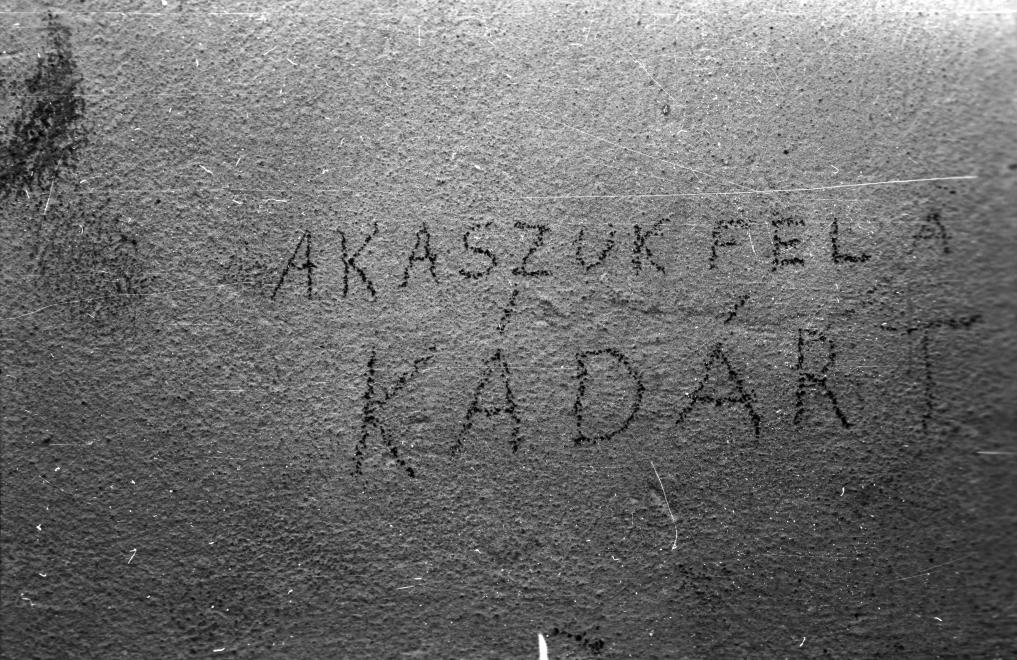 AKASZUK FEL A
KÁDÁRT